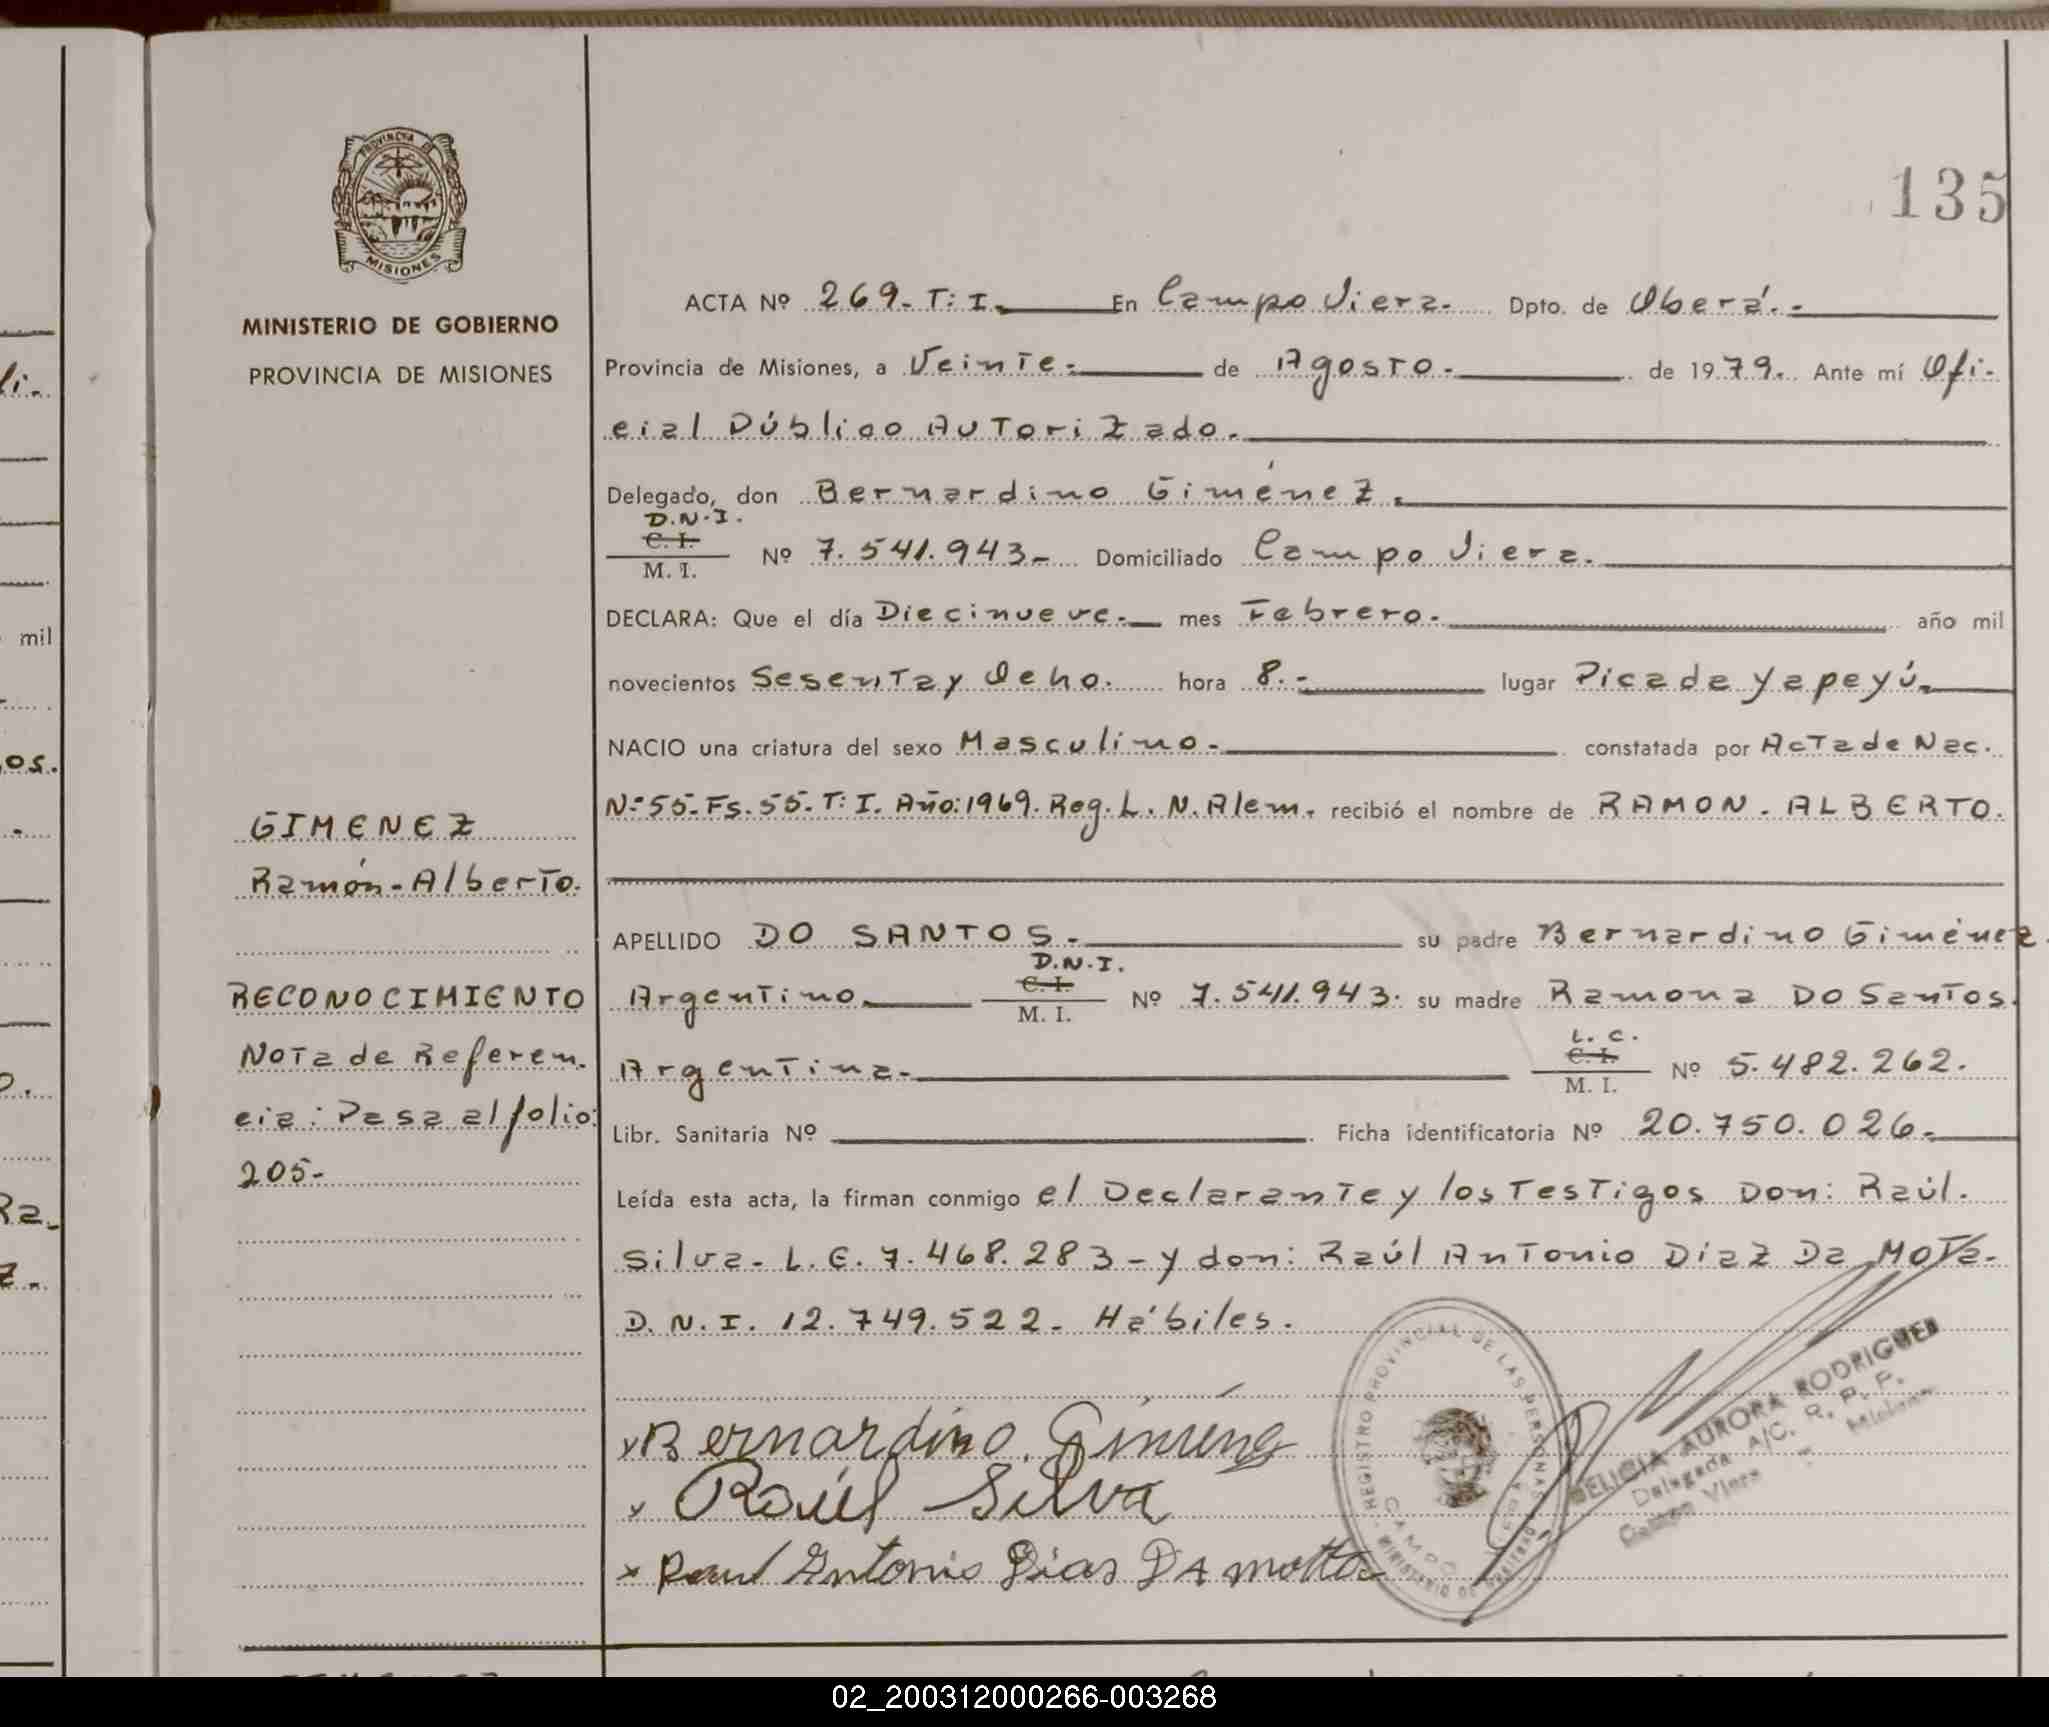 135
PROVINCIA DE
MISIONES
MINISTERIO DE GOBIERNO
PROVINCIA DE MISIONES
GIMENEZ
Ramón-Alberto.
RECONOCIMIENTO
Nota de Referen.
cia: Pasa al folio:
205-
ACTA Nº 269-T:I. En Campo Viera. Dpto. de Oberá.-
Provincia de Misiones, a Veinte.- de Agosto.- de 1979. Ante mí Ofi-
cial Público Autorizado.
Delegado, don Bernardino Giménez.
D.N.I.
C. I.
M. I. Nº 7.541.943- Domiciliado Campo Viera.
DECLARA: Que el día Diecinueve.- mes Febrero. año mil
novecientos Sesenta y Ocho. hora 8.- lugar Picada Yapeyú.
NACIO una criatura del sexo Masculino.- constatada por Acta de Nac.
Nº55-Fs.55-T:I. Año:1969. Reg. L. N. Alem. recibió el nombre de RAMON-ALBERTO.
APELLIDO DO SANTOS.- su padre Bernardino Giménez.
D.N.I.
Argentino. C. I.
M. I. Nº 7.541.943. su madre Ramona Do Santos.
L. C.
Argentina. C. I.
M. I. Nº 5.482.262.
Libr. Sanitaria Nº Ficha identificatoria Nº 20.750.026.
Leída esta acta, la firman conmigo el Declarante y los Testigos Don: Raúl.
Silva- L.E. 7.468.283-y don: Raúl Antonio Diaz Da Mota-
D.N.I. 12.749.522- Hábiles.
x Bernardino Gimenez
x Raúl Silva
x Raul Antonio Dias DA motta
REGISTRO PROVINCIAL DE LAS PERSONAS
CAMPO
DELICIA AURORA RODRIGUEZ
Delegada A/C. R. P. P.
Campo Viera Misiones
mil
os.
Ra.
02_200312000266-003268